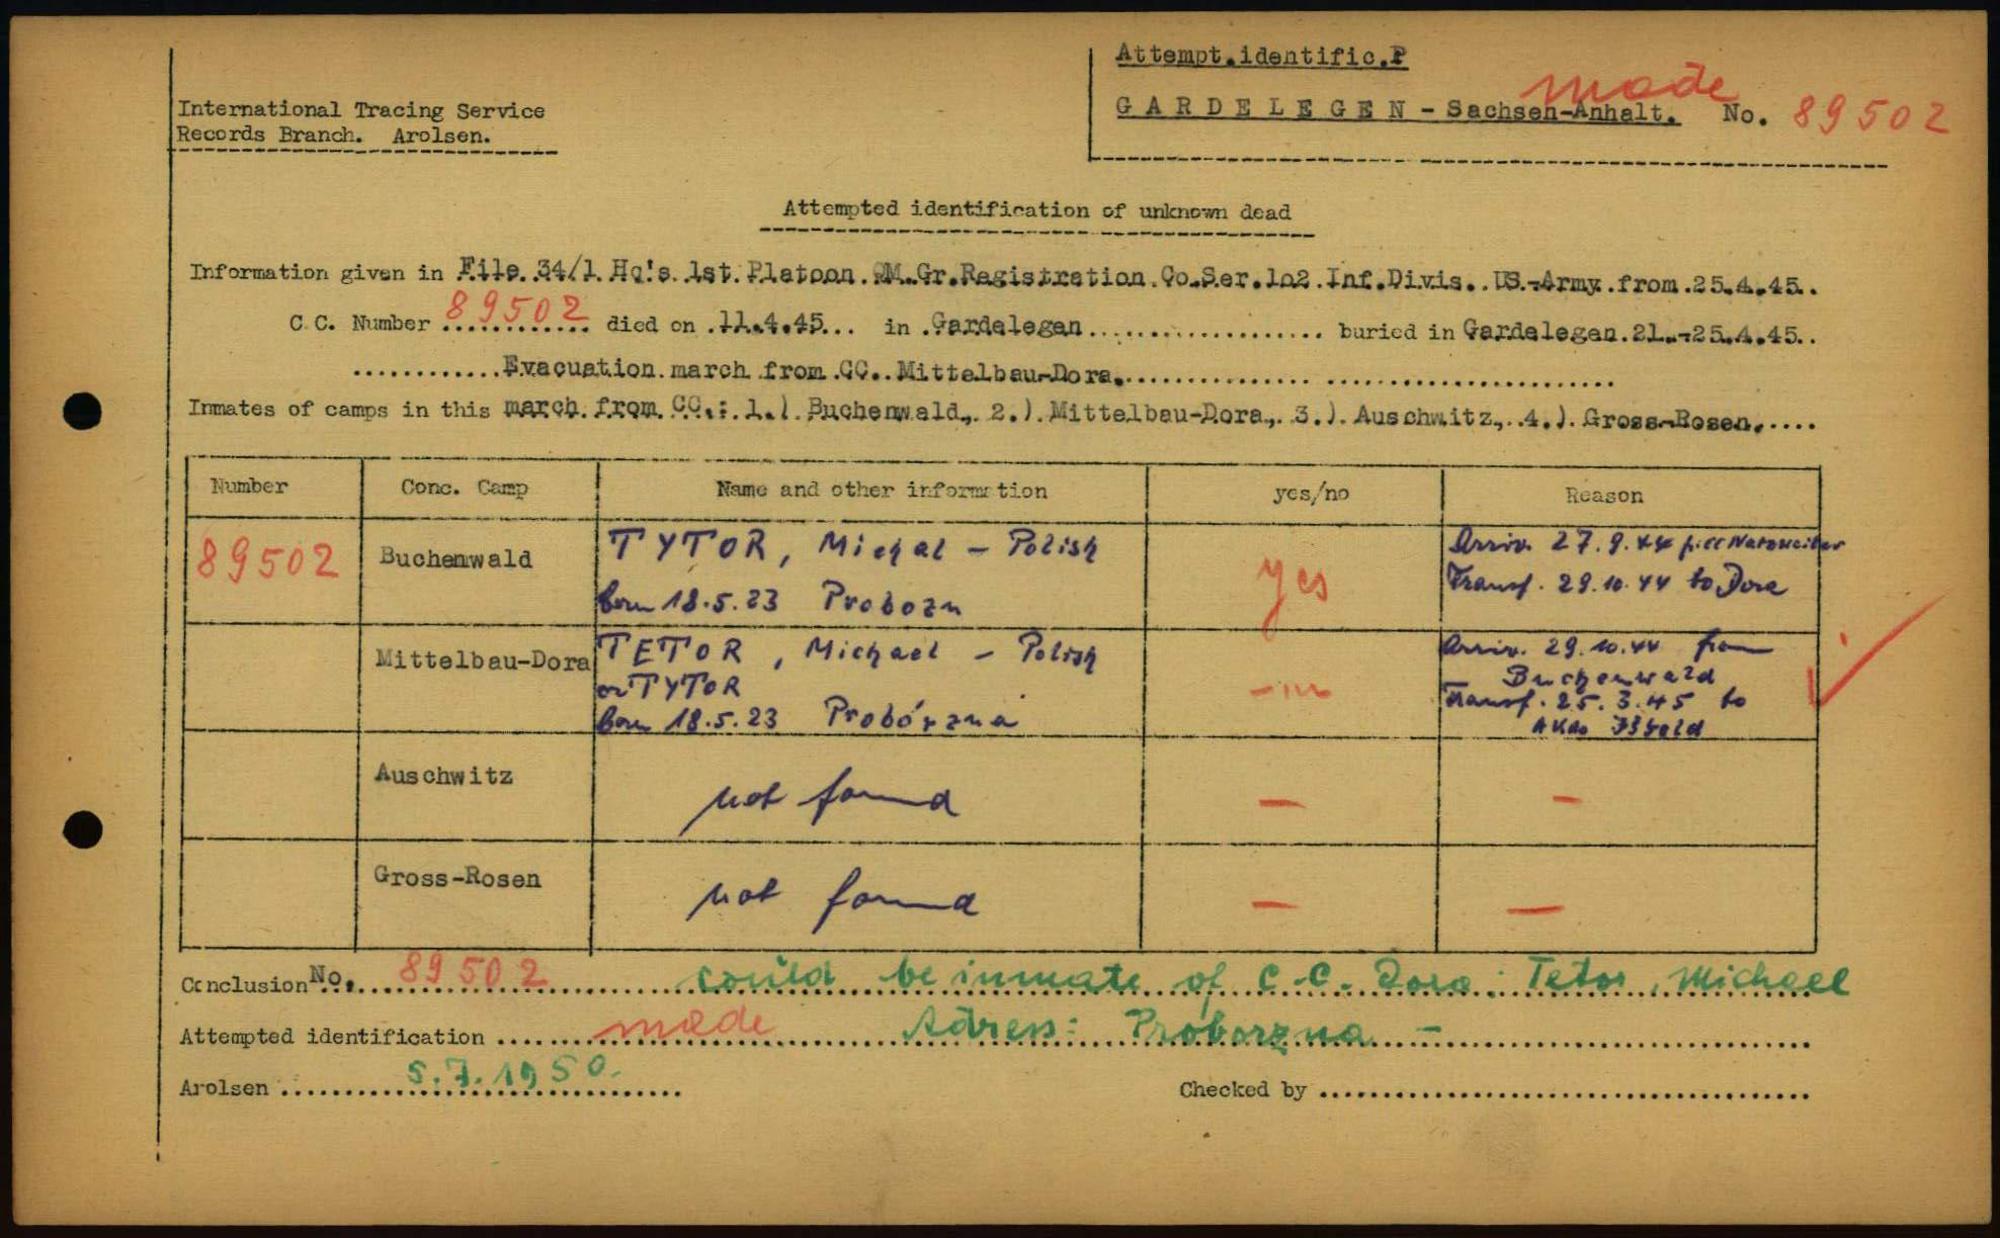 Attempt.identific.P
made
International Tracing Service
GARDELEGEN - Sachsen-Anhalt. No. 89502
Records Branch. Arolsen.
Attempted identification of unknown dead
Information given in File 34/1 Hq's 1st Platoon QM.Gr.Registration Co.Ser.102 Inf.Divis. US-Army from 25.4.45.
C.C. Number 89502 died on 11.4.45... in Gardelegen........ buried in Gardelegen 21.-25.4.45..
............Evacuation march from CC. Mittelbau-Dora...............
Inmates of camps in this march from CC.: 1.) Buchenwald, 2.) Mittelbau-Dora, 3.) Auschwitz, 4.) Gross-Rosen.....
Number Conc. Camp Name and other information yes/no Reason
89502 Buchenwald TYTOR, Michal - Polish yes Arriv. 27.9.44 Natzweiler
born 18.5.23 Probozn Transf. 29.10.44 to Dora
Mittelbau-Dora TETOR, Michael - Polish Arriv. 29.10.44 from
or TYTOR - " - Buchenwald
born 18.5.23 Probórzna Transf. 25.3.45 to
AKdo Ilfeld
Auschwitz not found - -
Gross-Rosen not found - -
Conclusion No. 89502 could be inmate of C.C. Dora: Tetor, Michael
Attempted identification made Adress: Proborzna -
Arolsen 5.7.1950. Checked by ........